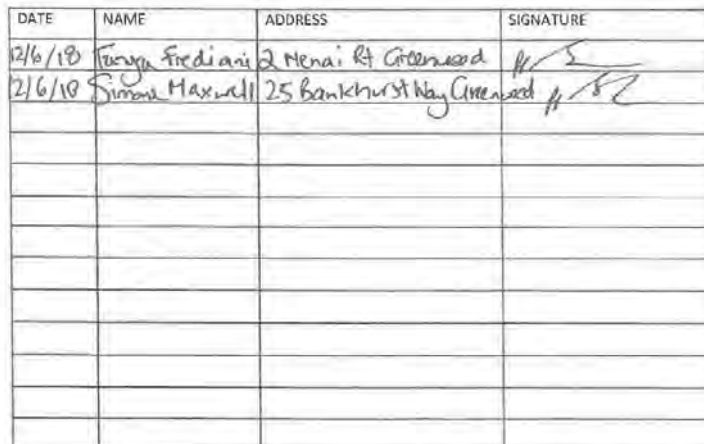 DATE NAME ADDRESS SIGNATURE
12/6/18 Tanya Frediani 2 Menai Rt Greenwood
12/6/18 Simone Maxwell 25 Bankhurst Way Greenwood